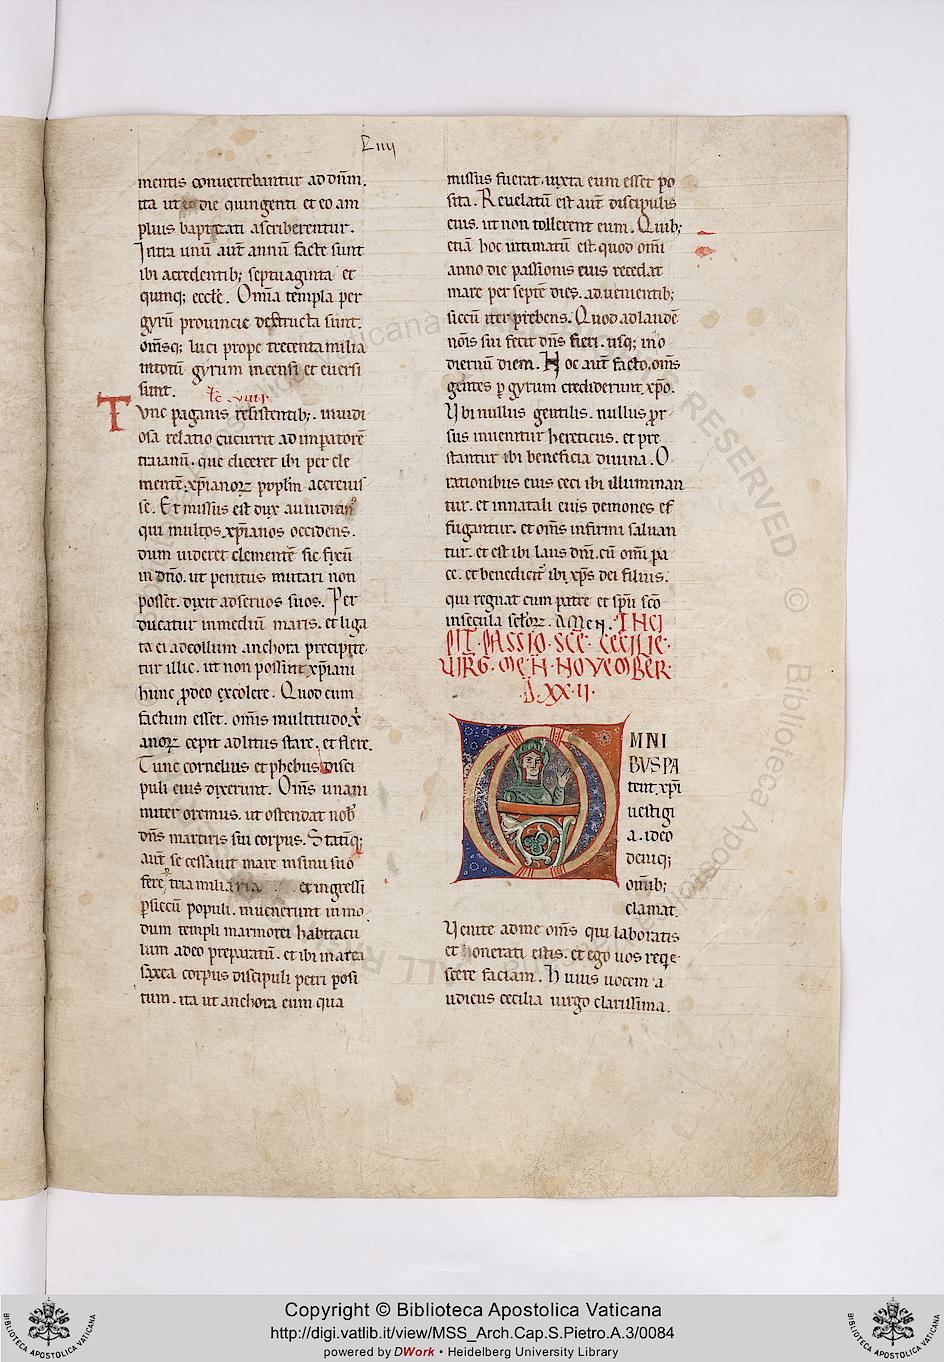 Liiij
mentis conuertebantur ad dn̄m.
ita ut eo die quingenti et eo am
plius baptizati ascriberentur.
Intra unū aut̄ annū facte sunt
ibi acredentib; septuaginta et
quinq; eccłe. Omīa templa per
gyrū prouincie destructa sunt.
om̄sq; luci prope trecenta milia
intotū gyrum incensi et euersi
sunt.
Tunc paganis resistentib;. inuidi
osa relatio cucurrit ad impatorē
traianū. que diceret ibi per cle
mentē xp̄ianoꝝ popłm accreuis
se. Et missus est dux aufidian᷒
qui multos xp̄ianos occidens.
dum uideret clementē sic fixū
in dn̄o. ut penitus mutari non
posset. dixit ad seruos suos. Per
ducatur in mediū maris. et liga
ta ei ad collum anchora precipite
tur illic. ut non possint xp̄iani
hunc ꝓ deo excolere. Quod cum
factum esset. omīs multitudo xp̄i
anoꝝ cepit ad litus stare. et flere.
Tunc cornelius et phebus disci
puli eius dixerunt. Om̄s unani
miter oremus. ut ostendat nob̄
dn̄s martiris sui corpus. Statīq;
aut̄ se cessauit mare in sinu suo
fere tria miliaria et ingressi
ꝑ siccū populi. inuenerunt in mo
dum templi marmorei habitacu
lum a deo preparatū. et ibi in arca
saxea corpus discipuli petri posi
tum. ita ut anchora cum qua
missus fuerat. iuxta eum esset po
sita. Reuelatū est aut̄ discipulis
eius. ut non tollerent eum. Quib;
etiā hoc intimatū est quod omī
anno die passionis eius recedat
mare per septē dies. aduenientib;
siccū iter prebens. Quod ad laudē
nōis sui fecit dn̄s fieri. usq; in o
diernū diem. Hoc aut̄ facto. om̄s
gentes ꝑ gyrum crediderunt xp̄o.
Vbi nullus gentilis. nullus ꝓr
sus inuenitur hereticus. et pre
stantur ibi beneficia diuina. O
rationibus eius ceci ibi illuminan
tur. et in natali eius demones ef
fugantur. et om̄s infirmi saluan
tur. et est ibi laus dn̄i. cū omī pa
ce. et benedicit᷒ ibi xp̄s dei filius.
qui regnat cum patre et sp̄u sc̄o
in secula secłoꝝ. AMEN. INCI
PIT. PASSIO. SCE. CECILIE.
VIRG. MEN. NOVEMBER.
D. XX. II.
OMNI
BVS PA
tent xp̄i
uestigi
a. ideo
deniq;
omīb;
clamat.
Venite ad me om̄s qui laboratis
et honerati estis. et ego uos reqe
scere faciam. Huius uocem a
udiens cecilia uirgo clarissima.
Copyright © Biblioteca Apostolica Vaticana
http://digi.vatlib.it/view/MSS_Arch.Cap.S.Pietro.A.3/0084
powered by DWork • Heidelberg University Library
BIBLIOTECA APOSTOLICA VATICANA
BIBLIOTECA APOSTOLICA VATICANA